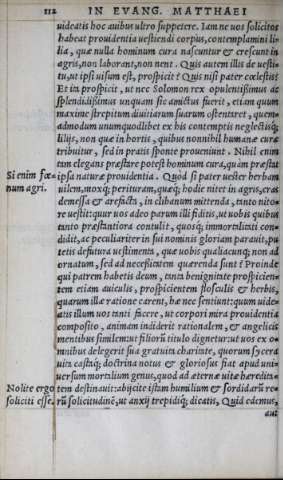 112 IN EVANG. MATTHAEI
uideatis hoc auibus ultro suppetere. Iam ne uos solicitos
habeat prouidentia uestiendi corpus, contemplamini li-
lia, quæ nulla hominum cura nascuntur & crescunt in
agris, non laborant, non nent. Quis autem illis de uesti-
tu, ut ipsi uisum est, prospicit? Quis nisi pater cœlestis?
Et ita prospicit, ut nec Solomon rex opulentissimus ac
splendidissimus unquam sic amictus fuerit, etiam quum
maxime strepitum diuitiarum suarum ostentaret, quem-
admodum unumquodlibet ex his contemptis neglectisq;
lilijs, non quæ in hortis, quibus nonnihil humanæ curæ
tribuitur, sed in pratis sponte proueniunt. Nihil enim
tam elegans præstare potest hominum cura, quàm præstat
Si enim fœ- ipsa naturæ prouidentia. Quod si pater uester herbam
num agri. uilem, moxq; perituram, quæq; hodie nitet in agris, cras
demessa & arefacta, in clibanum mittenda, tanto nito-
re uestit: quur uos adeo parum illi fiditis, ut uobis quibus
tanto præstantiora contulit, quosq; immortalitati con-
didit, ac peculiariter in sui nominis gloriam parauit, pu-
tetis defutura uestimenta, quæ uobis qualiacunq; non ad
ornatum, sed ad necessitatem quærenda sunt? Proinde
qui patrem habetis deum, tanta benignitate prospicien-
tem etiam auiculis, prospicientem flosculis & herbis,
quarum illæ ratione carent, hæ nec sentiunt: quum uide-
atis illum uos tanti facere, ut corpori mira prouidentia
composito, animam indiderit rationalem, & angelicis
mentibus similem: ut filiorū titulo dignetur: ut uos ex o-
mnibus delegerit sua gratuita charitate, quorum sycera
uita castáq; doctrina notus & gloriosus fiat apud uni-
uersum mortalium genus, quod ad æternæ uitæ hæredita-
Nolite ergo tem destinauit: abijcite istam humilium & sordidarū re-
soliciti esse. rū solicitudinē, ut anxij trepidiq; dicatis, Quid edemus,
aut